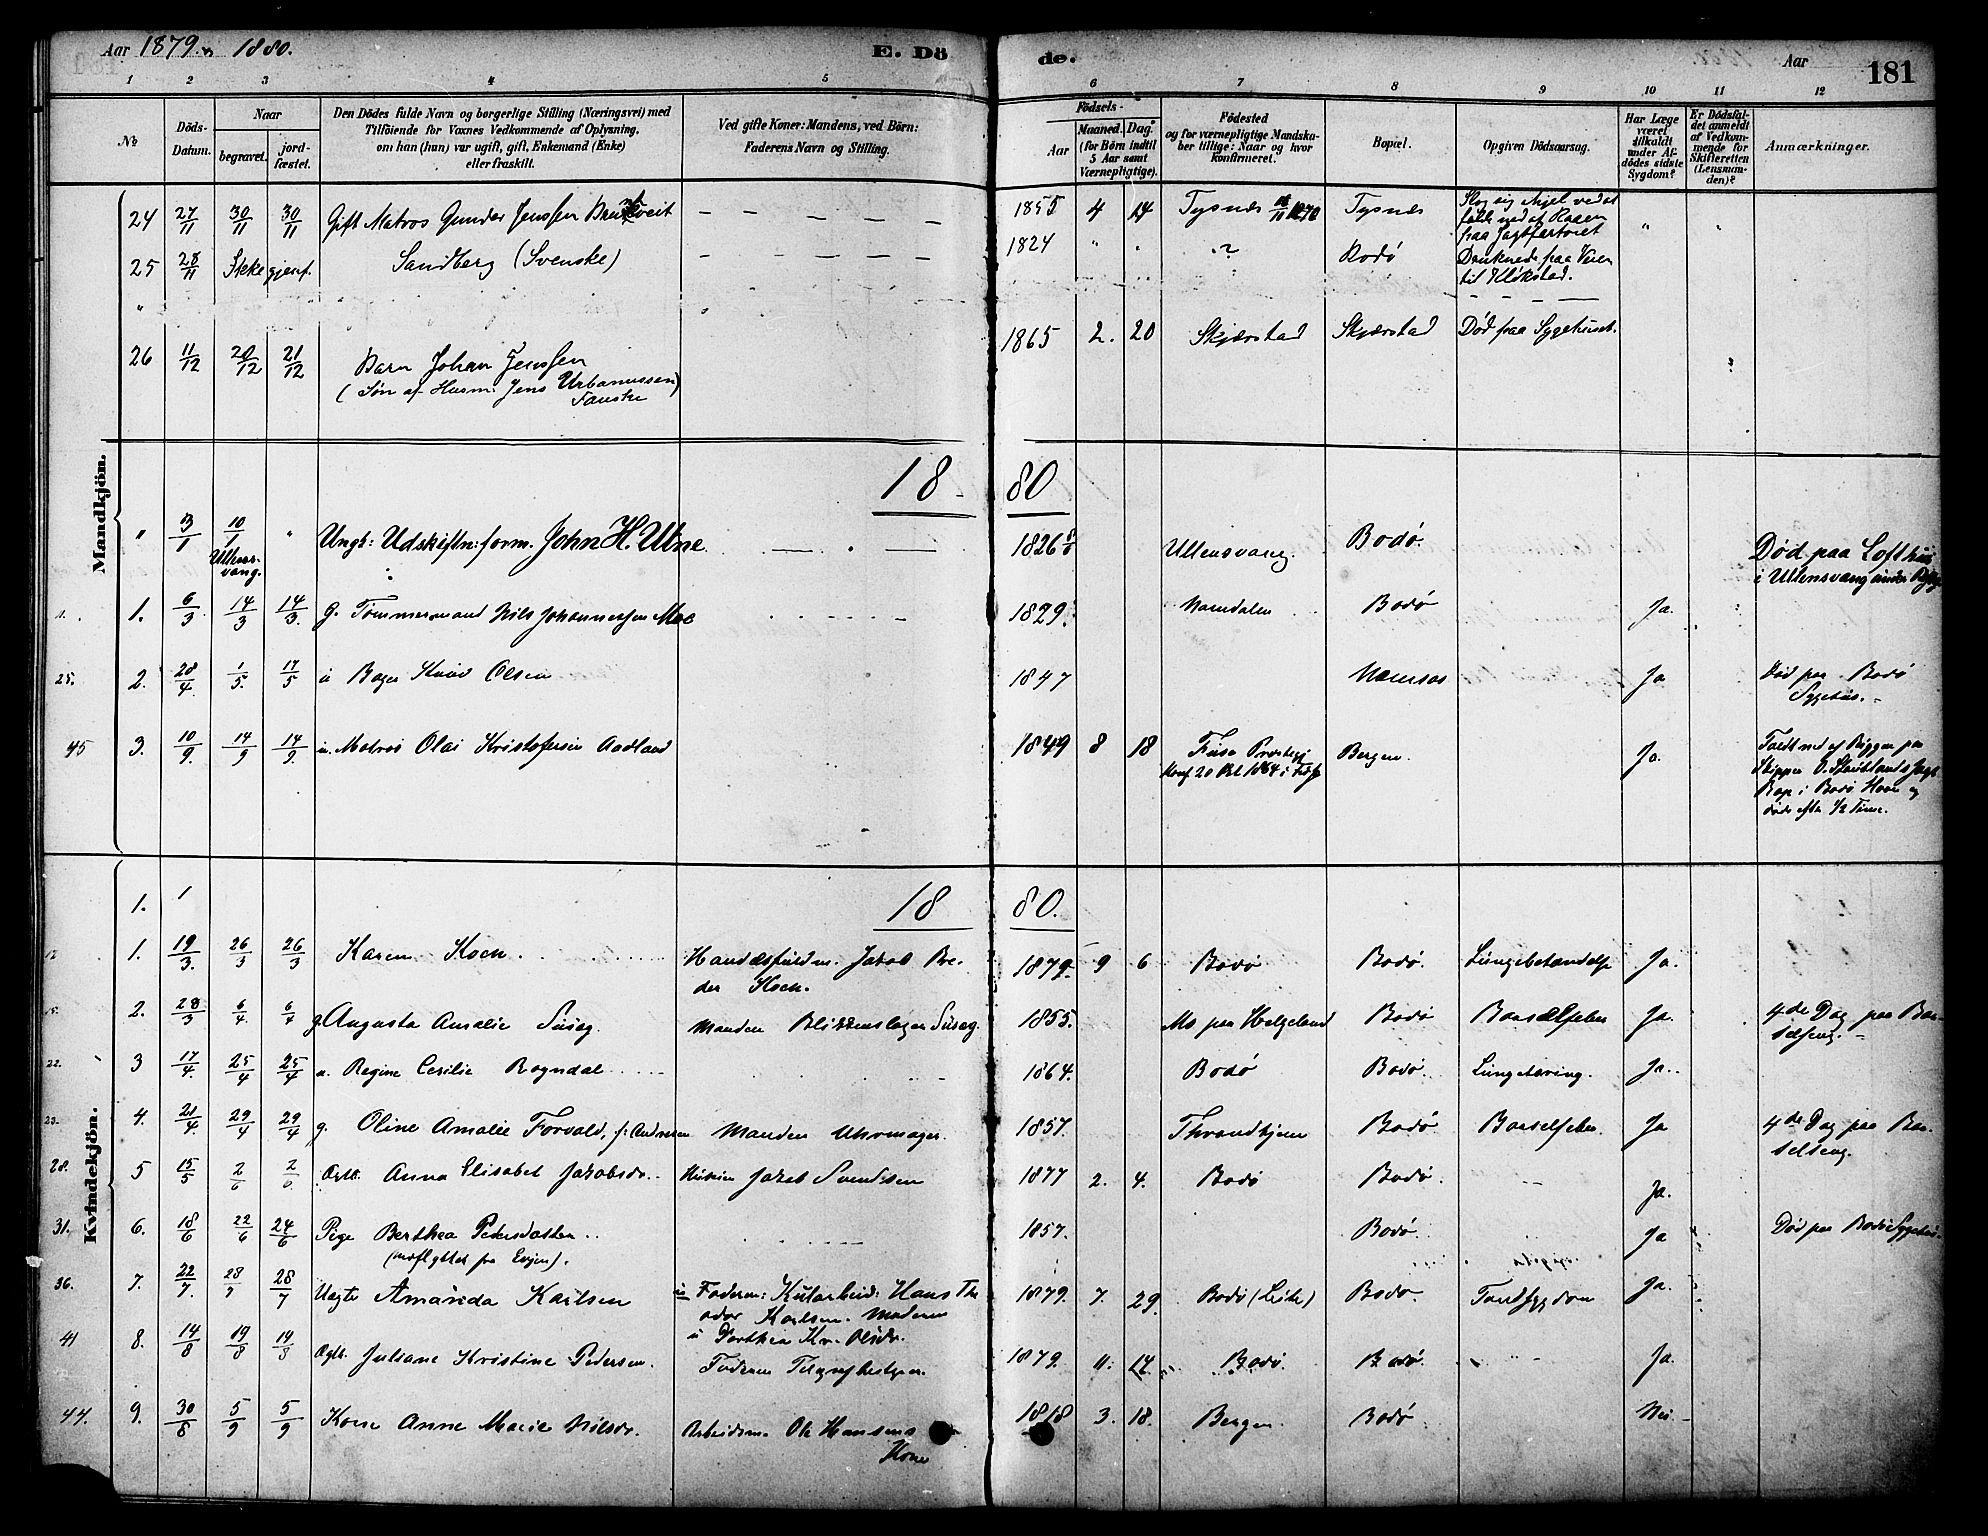 Aar 1879 1880.
E. Dö
de.
Aar
181
1 2 3 4 5 6 7 8 9 10 11 12
No
Döds-Datum.
Naar
begravet.
jord-fæstet.
Den Dödes fulde Navn og borgerlige Stilling (Næringsvei) med
Tilföiende for Voxnes Vedkommende af Oplysning,
om han (hun) var ugift, gift, Enkemand (Enke)
eller fraskilt.
Ved gifte Koner: Mandens, ved Börn:
Faderens Navn og Stilling.
Födsels-
Aar
Maaned. Dag.
(for Börn indtil
5 Aar samt
Værnepligtige).
Födested
og for værnepligtige Mandska-
ber tillige: Naar og hvor
konfirmeret.
Bopæl.
Opgiven Dödsaarsag.
Har Læge
været
tilkaldt
under Af-
dödes sidste
Sygdom?
Er Dödsfal-
det anmeldt
af Vedkom-
mende for
Skifteretten
(Lensman-
den)?
Anmærkninger.
Mandkjön.
24 27/11 30/11 30/11 Gift Matros Gunder Jenssen 1855 4 14 Tysnes Tysnes Slog sig ihjel ved at
falde ned af Raaen
paa Jagtfartøiet
25 28/11 Ikke gjenf. Sandberg (Svenske) 1824 " " ? Bodø Druknede paa Veien
til Kløkstad.
26 11/12 20/12 21/12 Barn Johan Jenssen 1865 2. 20 Skjærstad Skjærstad Død paa Sygehuset.
(Søn af Husm: Jens Urbanussen)
Fauske
18 80
" 3/1 10/1 " Ungk: Udskiftn: form. John H. Utne 1826 Ullensvang. Bodø. Død paa Lofthus
Ullens-
vang.
i Ullensvang under
1. 1. 6/3 14/3 14/3 g. Tømmermand Nils Johannessen Moe 1829. Namdalen Bodø Ja.
25. 2. 28/4 1/5 17/5 u Bager Knud Olsen 1847 Namsos Ja Død paa Bodø
Sygehus.
45 3. 10/9 14/9 14/9 u. Matros Olai Kristofersen Aadland 1849 8 18 Fuse Præstegj Bergen. Ja. Faldt ned af Riggen paa
Skipper O. Jagt
i Bodø Havn og
døde efter 1/2 Time.
Kvindekjön.
1. 1 18 80.
1. 19/3 26/3 26/3 Karen Koch. Handelsfuldm. Jakob Pe-
der Koch. 1879. 9 6 Bodø Bodø. Lungebetændelse Ja.
15. 2. 28/3 6/4 6/4 g. Augusta Amalie Suseg. Manden Blikkenslager Suseg. 1855. Mo paa Helgeland Bodø Barselfeber Ja. 4de Dag paa Bar-
selseng.
22. 3 17/4 25/4 25/4 u. Regine Cecilie Rogndal 1864. Bodø Bodø. Lungetæring. Ja.
23. 4. 21/4 29/4 29/4 g. Oline Amalie Forvald, f: Andresen Manden Uhrmager. 1857. Throndhjem Bodø. Barselfeber. Ja 4de Dag paa Bar-
selseng.
28. 5 15/5 2/6 2/6 Ægtb. Anna Elisabet Jakobsdr. Husm Jakob Svendsen 1877 2. 4. Bodø Bodø. Ja.
31. 6. 18/6 22/6 24/6 Pige Berthea Pedersdatter 1857. Bodø. Ja Død paa Bodø Sygehus.
(indflyttet fra Evjen).
36. 7. 22/7 28/7 28/7 Uægte Amanda Karlsen u Faderen: Kularbeid: Hans The
odor Karlsen. Moderen
u Dorthea Kr. Olsdr. 1879. 7. 29. Bodø (Leite) Bodø. Tandsygdom Ja.
41 8. 14/8 19/8 19/8 Ægtb. Juliane Kristine Pedersen. Faderen Telegrafbestyrer. 1879. 11. 14. Bodø. Bodø. Ja.
44. 9. 30/8 5/9 5/9 Kone Anne Marie Nilsdr. Arbeidsm. Ole Hansens
Kone 1818 3. 18. Bergen Bodø Nei